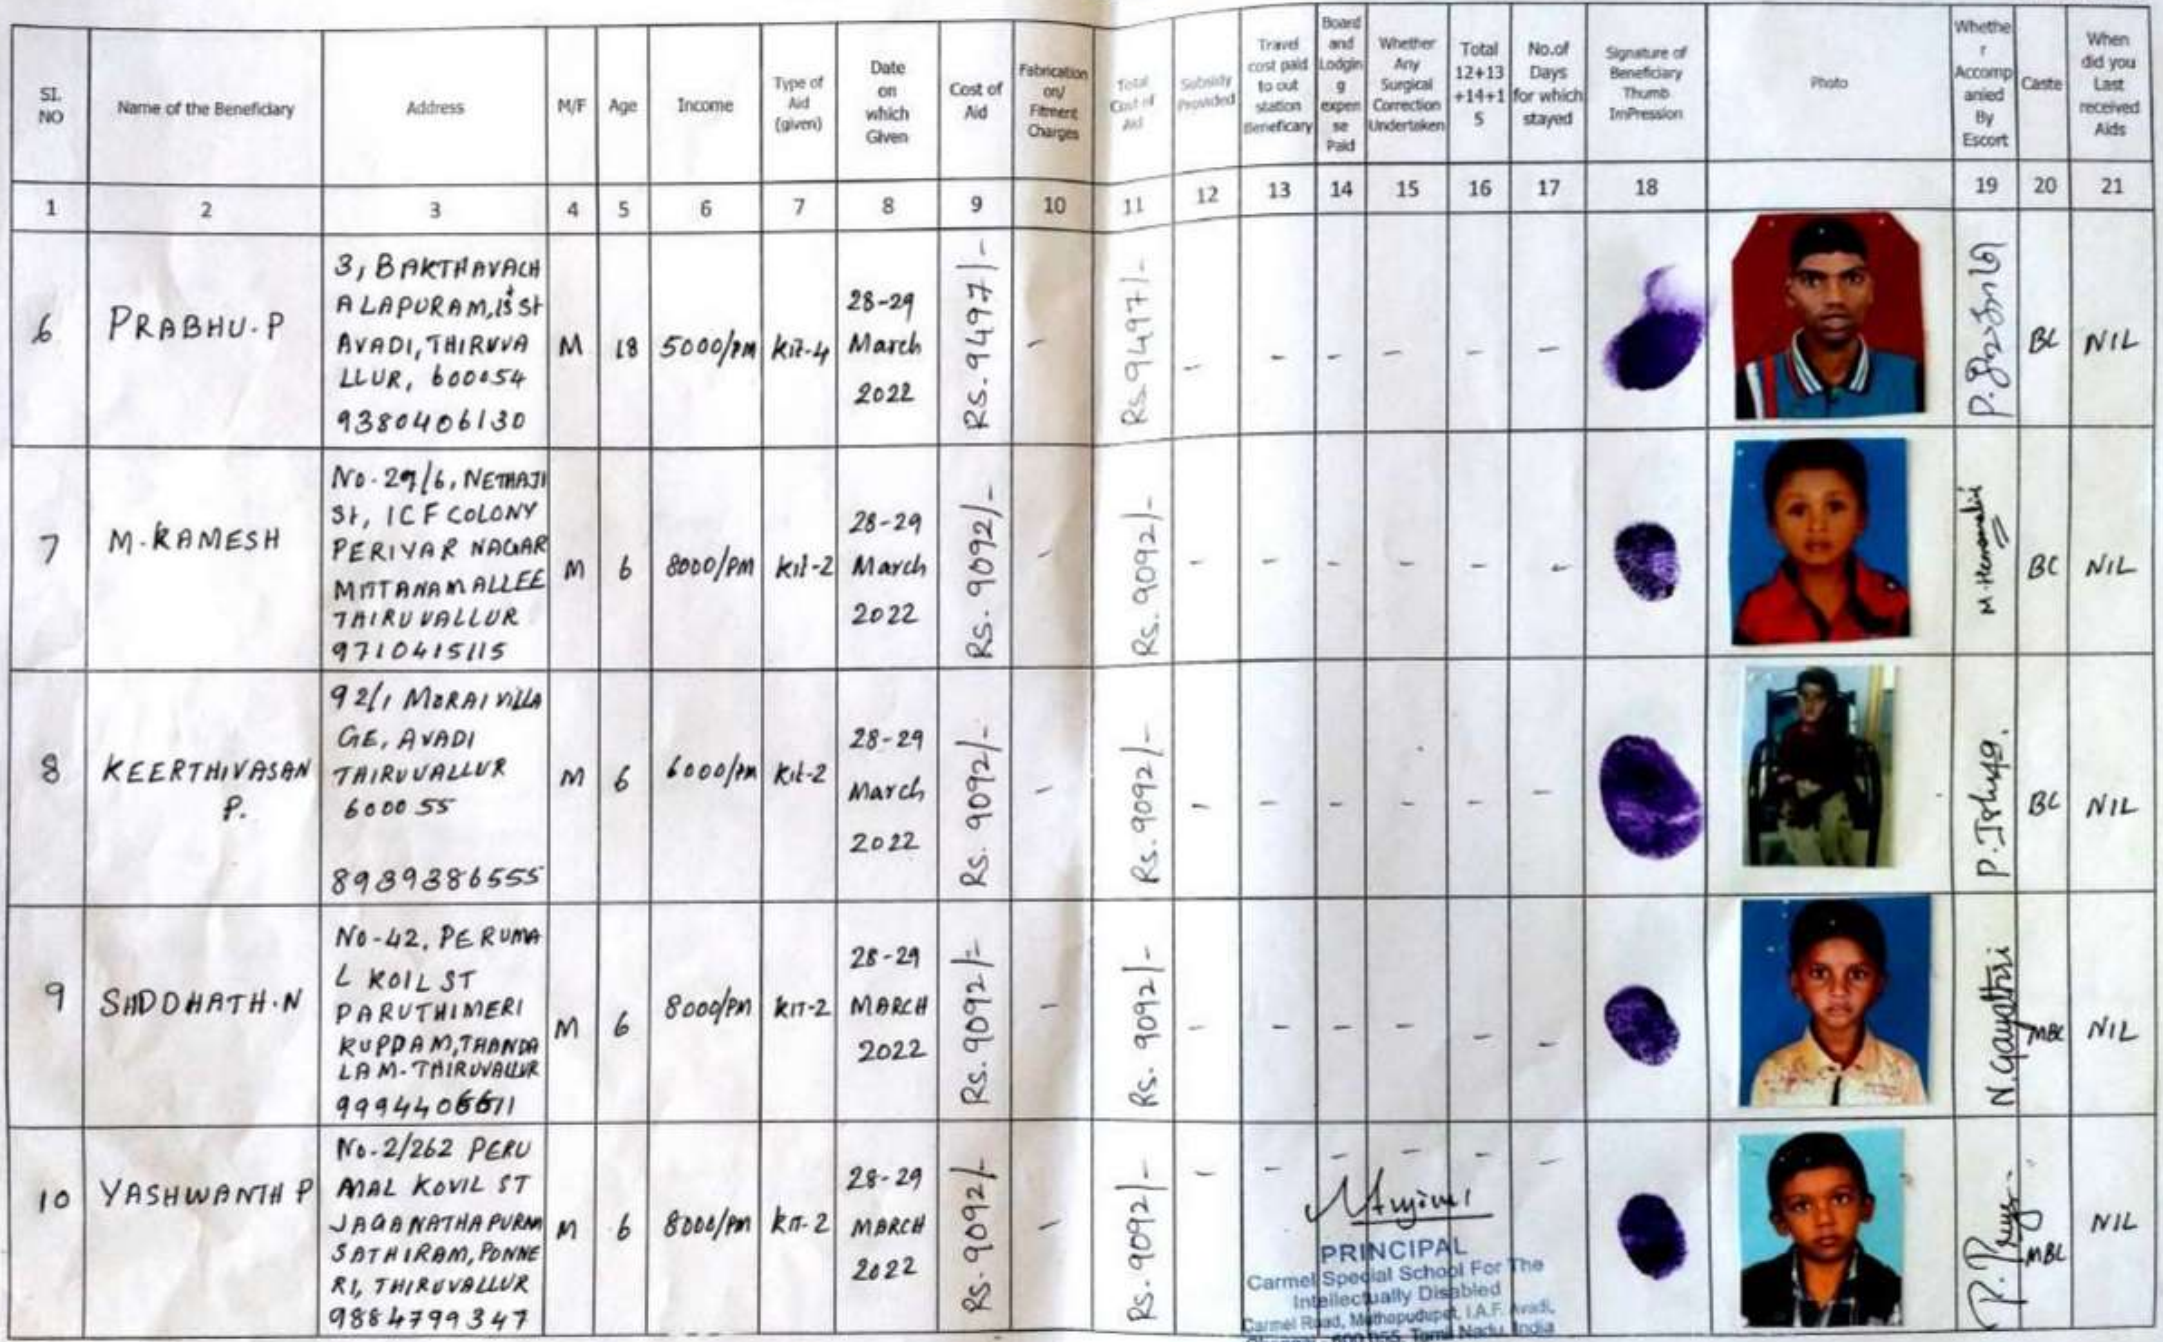 SI. NO
Name of the Beneficiary
Address
M/F
Age
Income
Type of Aid (given)
Date on which Given
Cost of Aid
Fabrication on/ Fitment Charges
Total Cost of Aid
Subsidy Provided
Travel cost paid to out station Beneficary
Board and Lodgin g expen se Paid
Whether Any Surgical Correction Undertaken
Total 12+13 +14+1 5
No.of Days for which stayed
Signature of Beneficiary Thumb ImPression
Photo
Whethe r Accomp anied By Escort
Caste
When did you Last received Aids
1 2 3 4 5 6 7 8 9 10 11 12 13 14 15 16 17 18 19 20 21
6
PRABHU.P
3, BAKTHAVACH
ALAPURAM, 1st St
AVADI, THIRUVA
LLUR, 600054
9380406130
M
18
5000/PM
Kit-4
28-29
March
2022
Rs.9497/-
-
Rs.9497/-
- - - - - -
P. பிரபாகு
BC
NIL
7
M.RAMESH
No-29/6, NETHAJI
St, ICF COLONY
PERIYAR NAGAR
MITTANAMALLEE
THIRUVALLUR
9710415115
M
6
8000/PM
Kit-2
28-29
March
2022
Rs. 9092/-
-
Rs. 9092/-
- - - - - -
BC
NIL
8
KEERTHIVASAN
P.
92/1 MORAI VILLA
GE, AVADI
THIRUVALLUR
6000 55
8939386555
M
6
6000/PM
Kit-2
28-29
March
2022
Rs. 9092/-
-
Rs. 9092/-
- - - - - -
BC
NIL
9
SIDDHATH.N
No-42, PERUMA
L KOIL ST
PARUTHIMERI
KUPPAM, THANDA
LAM-THIRUVALLUR
9994406611
M
6
8000/PM
KIT-2
28-29
MARCH
2022
Rs. 9092/-
-
Rs. 9092/-
- - - - - -
N.Gayathri
MBC
NIL
10
YASHWANTH P
No-2/262 PERU
MAL KOVIL ST
JAGANATHAPURAM
SATHIRAM, PONNE
RI, THIRUVALLUR
9884799347
M
6
8000/PM
KIT-2
28-29
MARCH
2022
Rs. 9092/-
-
Rs. 9092/-
- - - - - -
MBC
NIL
PRINCIPAL
Carmel Special School For The
Intellectually Disabled
Carmel Road, Muthapudupet, I.A.F. Avadi,
Chennai - 600 055. Tamil Nadu, India